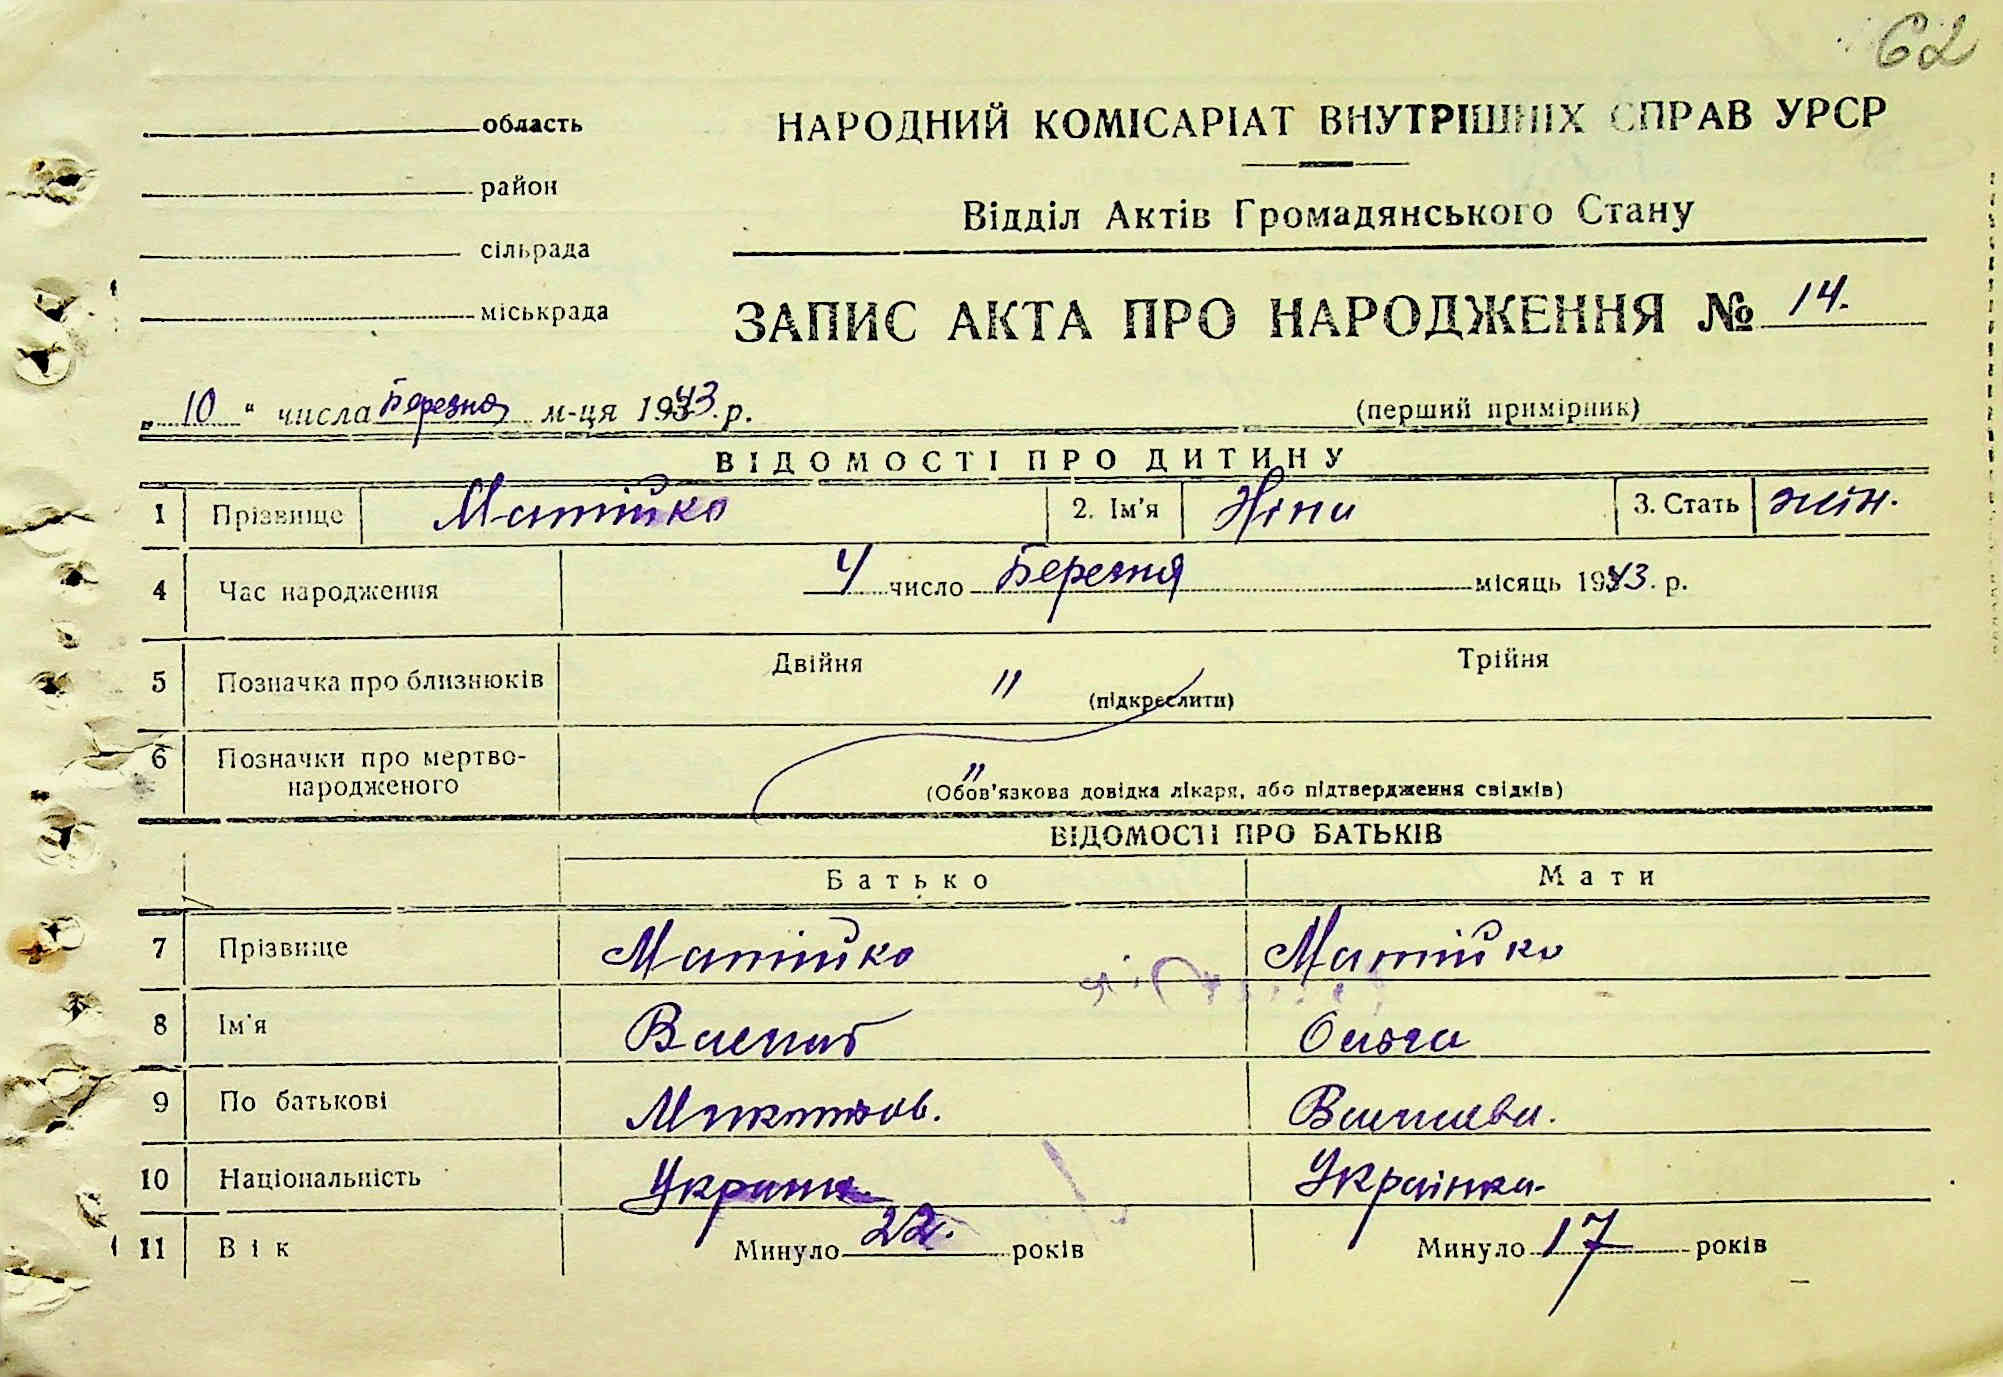 62
область
НАРОДНИЙ КОМІСАРІАТ ВНУТРІШНІХ СПРАВ УРСР
район
Відділ Актів Громадянського Стану
сільрада
міськрада
ЗАПИС АКТА ПРО НАРОДЖЕННЯ № 14.
„ 10 " числа Березня м-ця 1943. р.
(перший примірник)
ВІДОМОСТІ ПРО ДИТИНУ
1 Прізвище Матійко 2. Ім'я Ніна 3. Стать жін.
4 Час народження 4 число Березня місяць 1943. р.
5 Позначка про близнюків Двійня " (підкреслити) Трійня
6 Позначки про мертво-
народженого " (Обов'язкова довідка лікаря, або підтвердження свідків)
ВІДОМОСТІ ПРО БАТЬКІВ
Батько Мати
7 Прізвище Матійко Матійко
8 Ім'я Василь Ольга
9 По батькові Микитов. Василева.
10 Національність Українка.
11 Вік Минуло 22. років Минуло 17 років